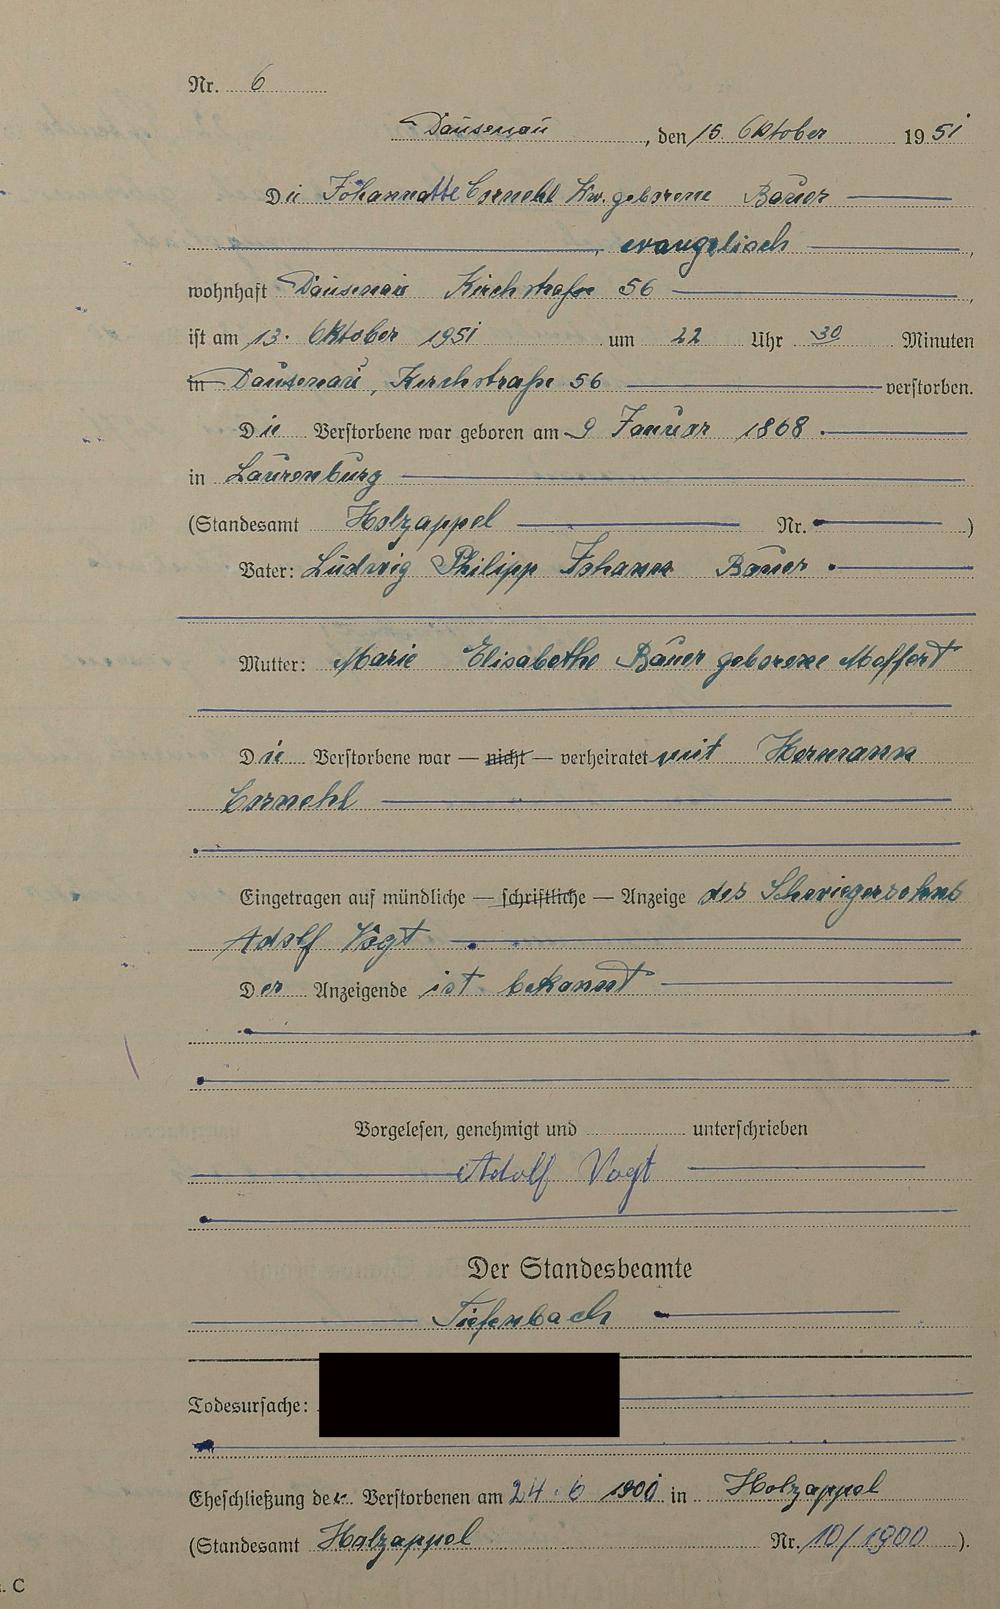 Nr. 6
Dausenau, den 15. Oktober 1951
Die Johannette Cornehl Ww. geborene Bauer
evangelisch,
wohnhaft Dausenau Kirchstraße 56,
ist am 13. Oktober 1951 um 22 Uhr 30 Minuten
in Dausenau, Kirchstraße 56 verstorben.
Die Verstorbene war geboren am 9 Januar 1868
in Laurenburg
(Standesamt Holzappel Nr. )
Vater: Ludwig Philipp Johann Bauer
Mutter: Marie Elisabethe Bauer geborene Maffert
Die Verstorbene war — nicht — verheiratet mit Hermann
Cornehl
Eingetragen auf mündliche — schriftliche — Anzeige des Schwiegersohns
Adolf Vogt
Der Anzeigende ist bekannt
Vorgelesen, genehmigt und unterschrieben
Adolf Vogt
Der Standesbeamte
Tiefenbach
Todesursache:
Eheschließung der Verstorbenen am 24.6 1900 in Holzappel
(Standesamt Holzappel Nr. 10/1900 ).
. C